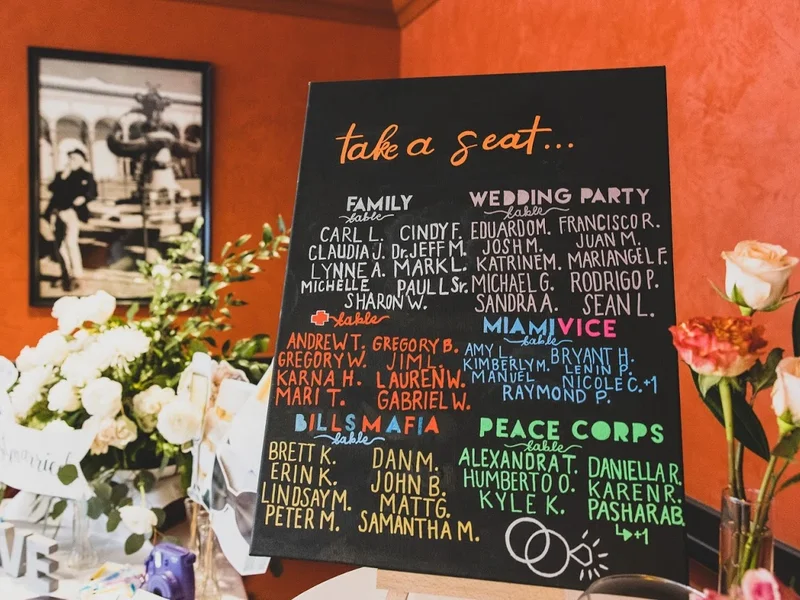 take a seat...
FAMILY
table
CARL L. CINDY F.
CLAUDIA J. Dr. JEFF M.
LYNNE A. MARK L.
MICHELLE PAUL L Sr.
SHARON W.
WEDDING PARTY
table
EDUARDO M. FRANCISCO R.
JOSH M. JUAN M.
KATRINE M. MARIANGEL F.
MICHAEL G. RODRIGO P.
SANDRA A. SEAN L.
table
ANDREW T. GREGORY B.
GREGORY W. JIM L.
KARNA H. LAUREN W.
MARI T. GABRIEL W.
MIAMI VICE
table
AMY L. BRYANT H.
KIMBERLY M. LENIN P.
MANUEL NICOLE C.+1
RAYMOND P.
BILLS MAFIA
table
BRETT K. DAN M.
ERIN K. JOHN B.
LINDSAY M. MATT G.
PETER M. SAMANTHA M.
PEACE CORPS
table
ALEXANDRA T. DANIELLA R.
HUMBERTO O. KAREN R.
KYLE K. PASHARAB.
+1